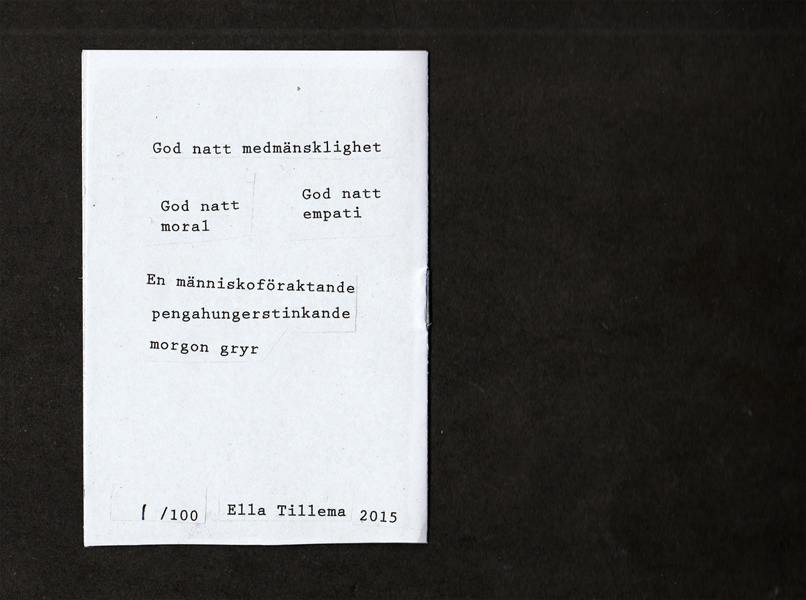 God natt medmänsklighet
God natt
moral
God natt
empati
En människoföraktande
pengahungerstinkande
morgon gryr
1 /100 Ella Tillema 2015